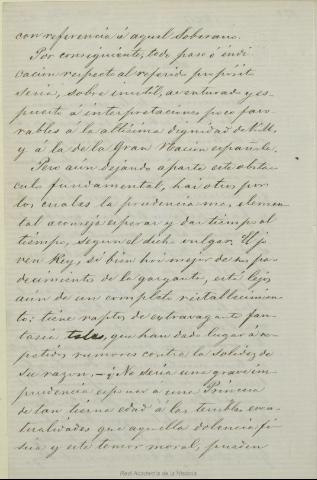 con referencia á aquel Soberano.
Por consiguiente, todo paso ó indi
cacion respecto al referido propósito
seria, sobre inútil, aventurado y es
puesto á interpretaciones poco favo
rables á la altísima dignidad de V. M.
y á la de la Gran Nacion española.
Pero aún dejando aparte este obstá
culo fundamental, hai otros por
los cuales la prudencia mas elemen
tal aconseja esperar y dar tiempo al
tiempo, segun el dicho vulgar. El jó
ven Rey, si bien hoi mejor de sus pa
decimientos de la garganta, está lejos
aún de un completo restablecimien
to: tiene raptos de extravagante fan
tasía tales, que han dado lugar á re
petidos rumores contra la solidez de
su razon. — ¿No seria una grave im
prudencia esponer á una Princesa
de tan tierna edad á las terribles even
tualidades que aquella dolencia fí
sica y este temor moral, pueden
Real Academia de la Historia